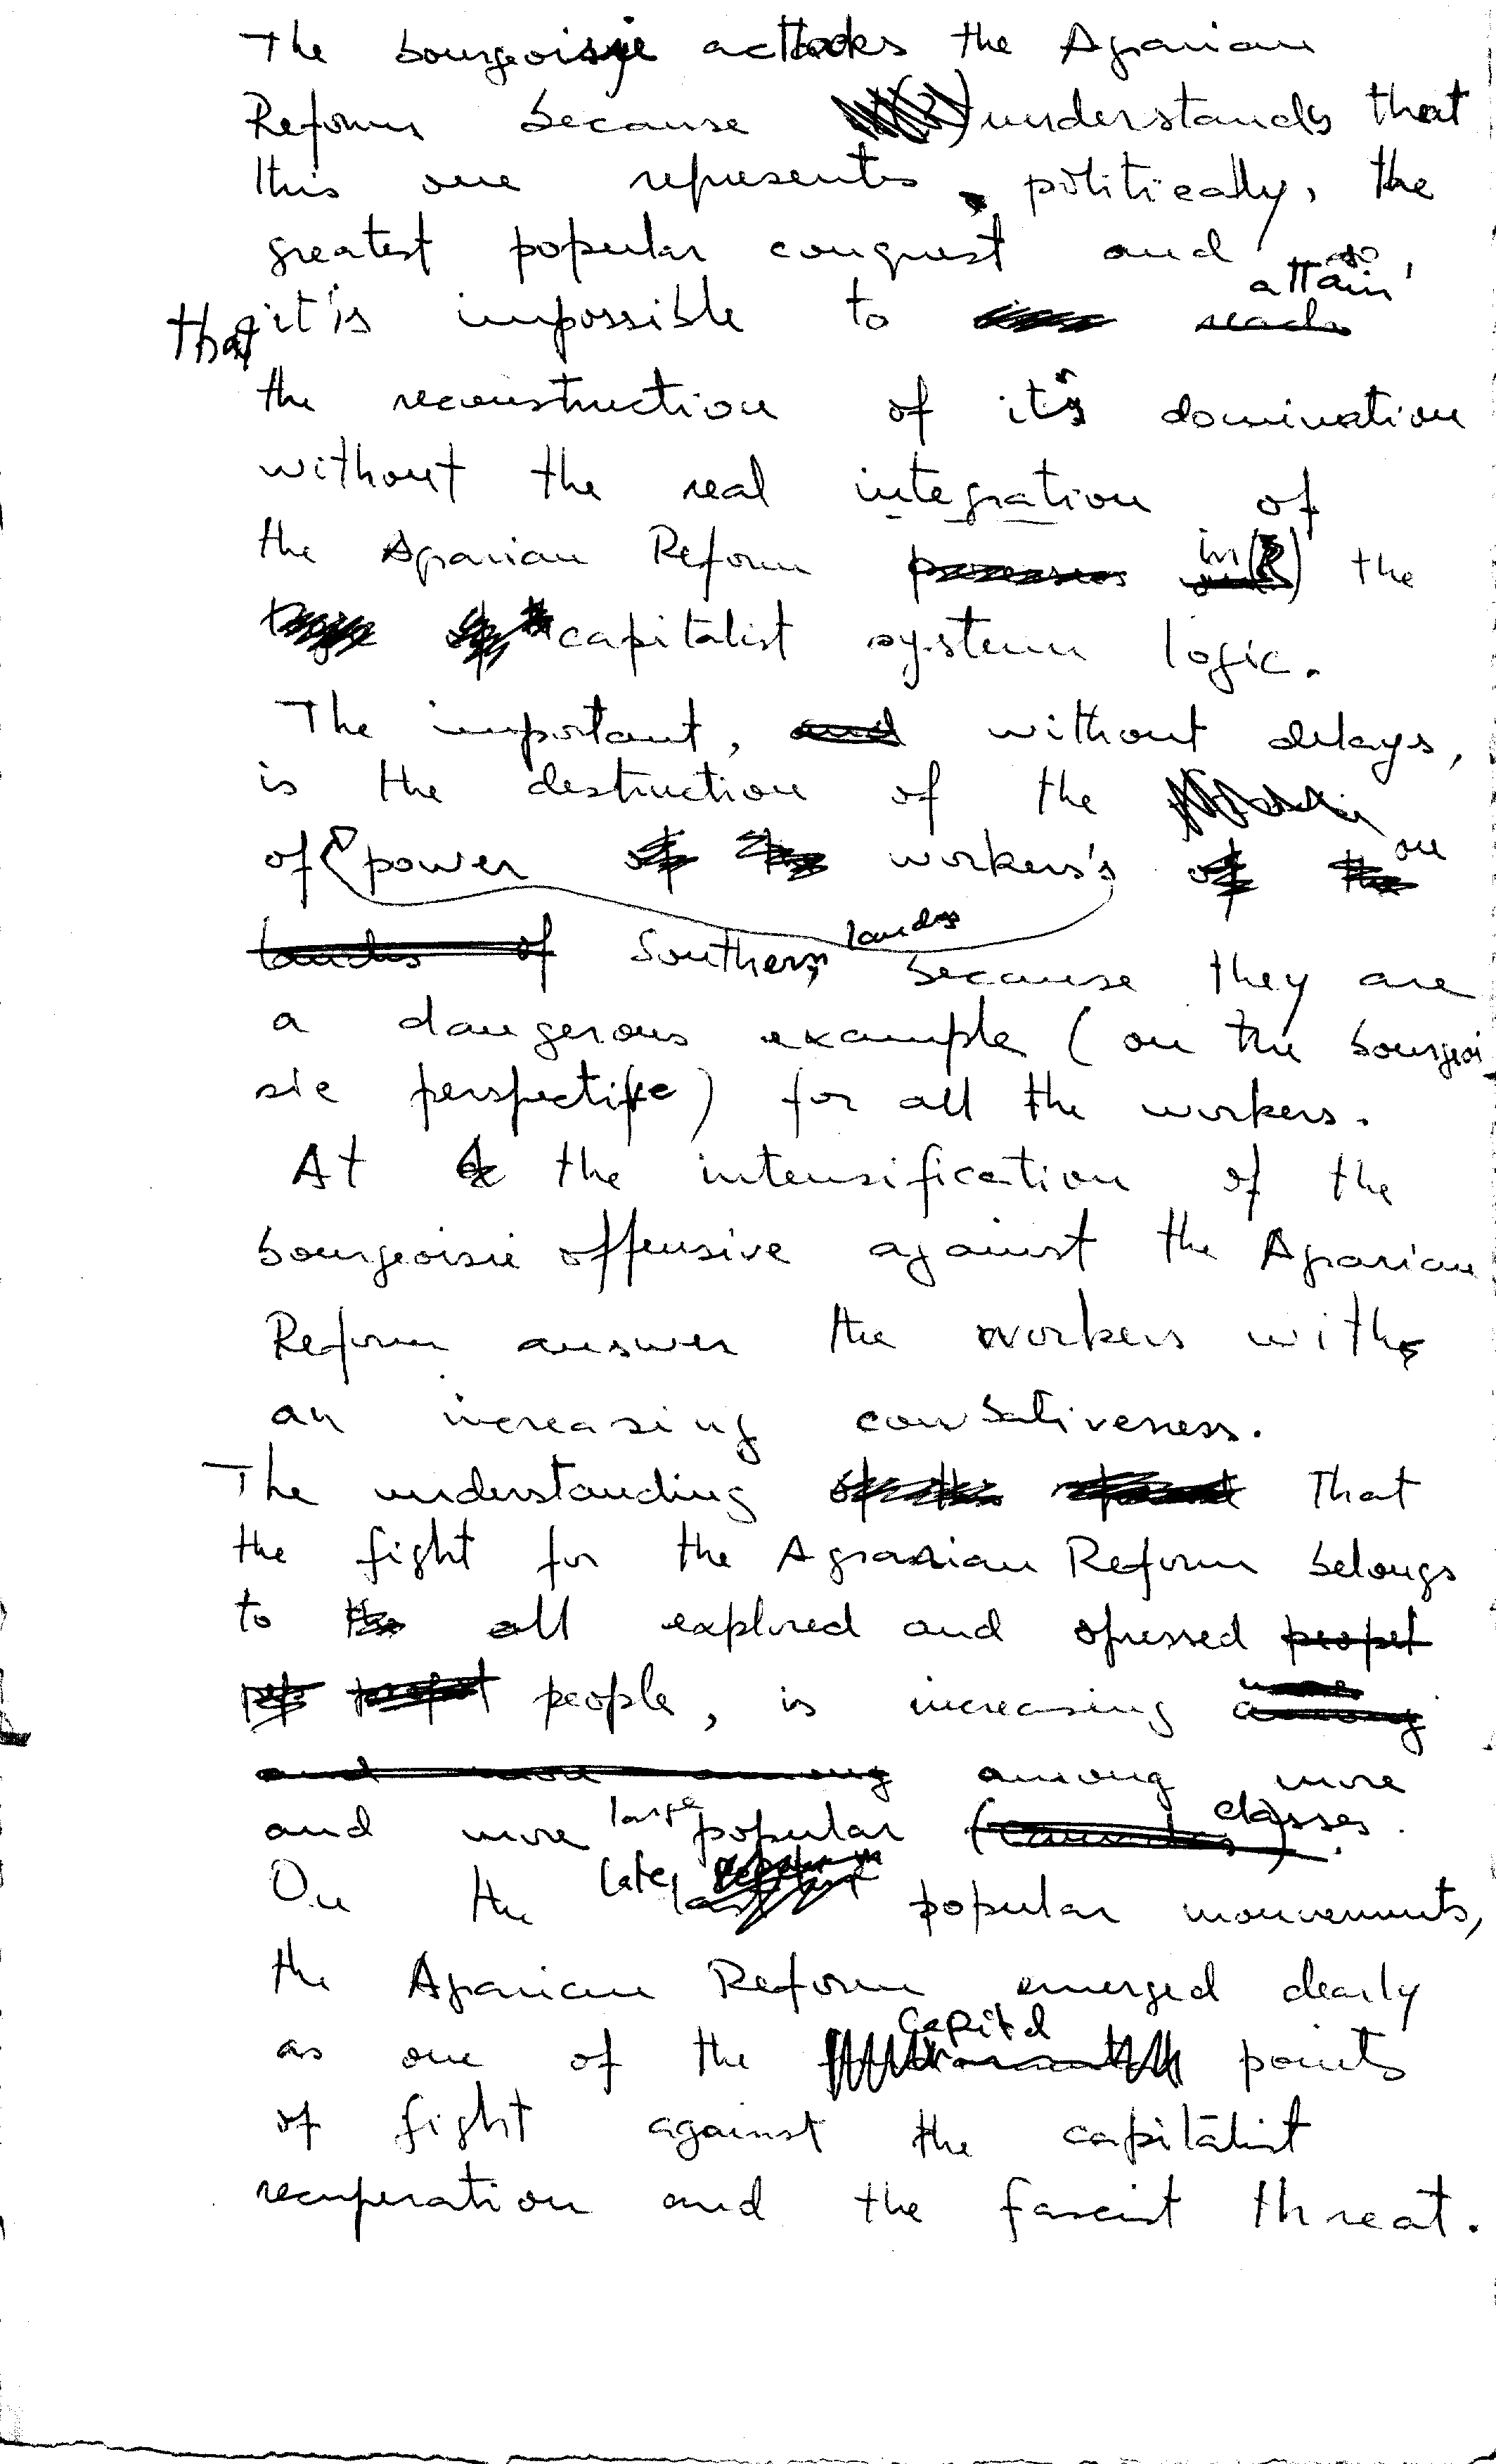 The bourgeoisie acttacks the Agrarian
Reform because understands that
this one represents, politically, the
greatest popular conquest and
that it's impossible to attain
the reconstruction of it's domination
without the real integration of
the Agrarian Reform in (?) the
capitalist system logic.
The important, without delays,
is the destruction of the
of power workers's on
Southern lands because they are
a dangerous example (on the bourgeoi-
sie perspective) for all the workers.
At the intensification of the
bourgeoisie offensive against the Agrarian
Reform answer the workers with
an increasing combativeness.
The understanding That
the fight for the Agrarian Reform belongs
to all explored and opressed
people, is increasing
among more
and more large popular classes.
On the late popular mouvements,
the Agrarian Reform emerged clearly
as one of the capital points
of fight against the capitalist
recuperation and the fascist threat.